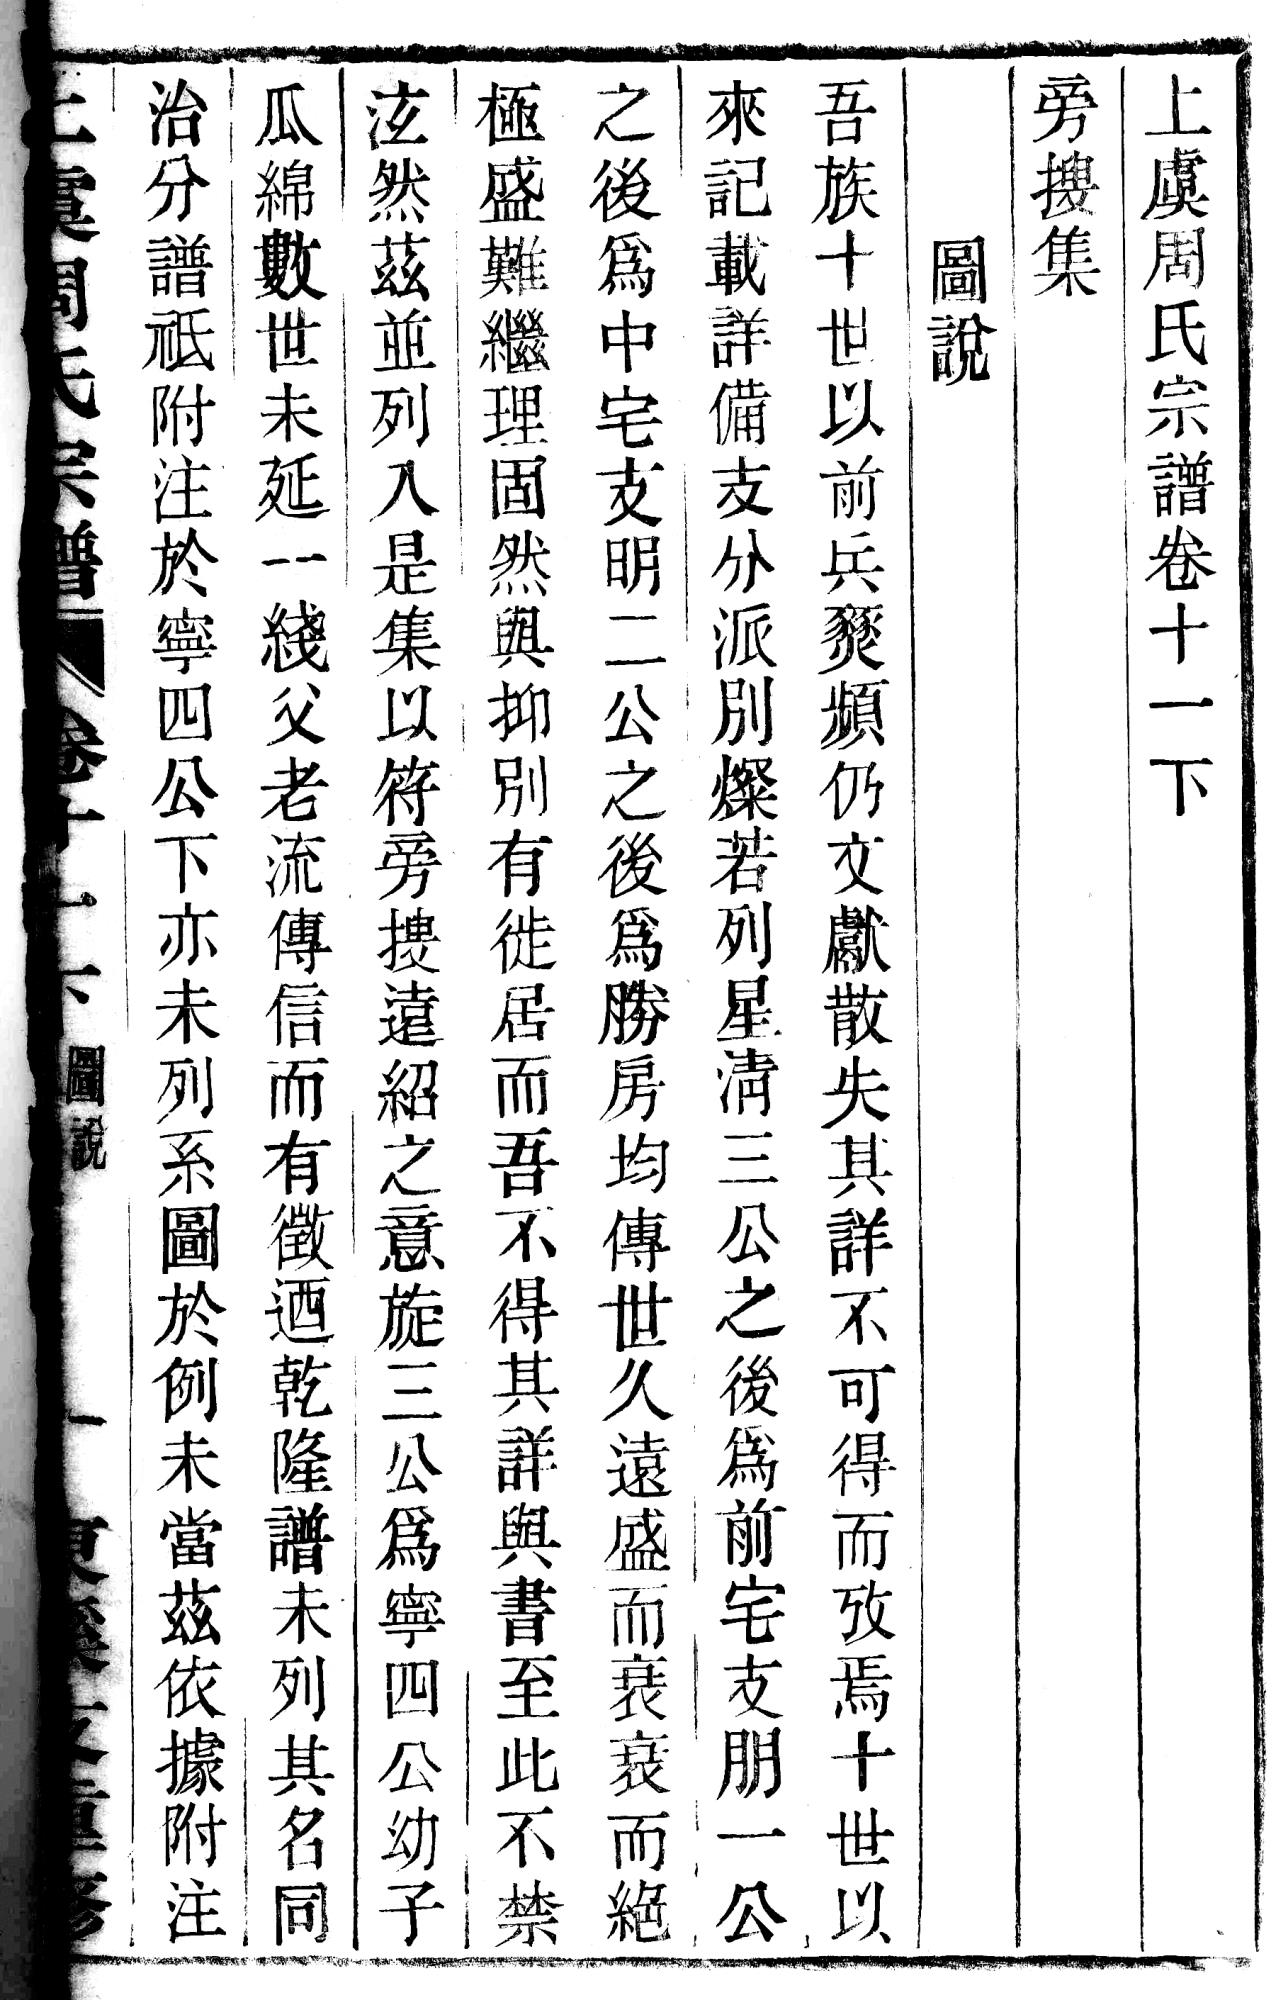 上虞周氏宗譜卷十一下
旁搜集
圖說
吾族十世以前兵燹頻仍文獻散失其詳不可得而攷焉十世以
來記載詳備支分派別燦若列星淸三公之後爲前宅支朋一公
之後爲中宅支明二公之後爲勝房均傳世久遠盛而衰衰而絕
極盛難繼理固然與抑別有徙居而吾不得其詳與書至此不禁
泫然茲並列入是集以符旁搜遠紹之意旋三公爲寧四公幼子
瓜綿數世未延一綫父老流傳信而有徵迺乾隆譜未列其名同
治分譜祗附注於寧四公下亦未列系圖於例未當茲依據附注
上虞周氏宗譜 卷十一下 圖說 一 東溪支重修